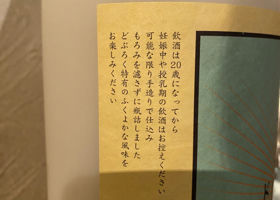 飲酒は20歳になってから
妊娠中や授乳期の飲酒はお控えください
可能な限り手造りで仕込み
もろみを濾さずに瓶詰しました
どぶろく特有のふくよかな風味を
お楽しみください